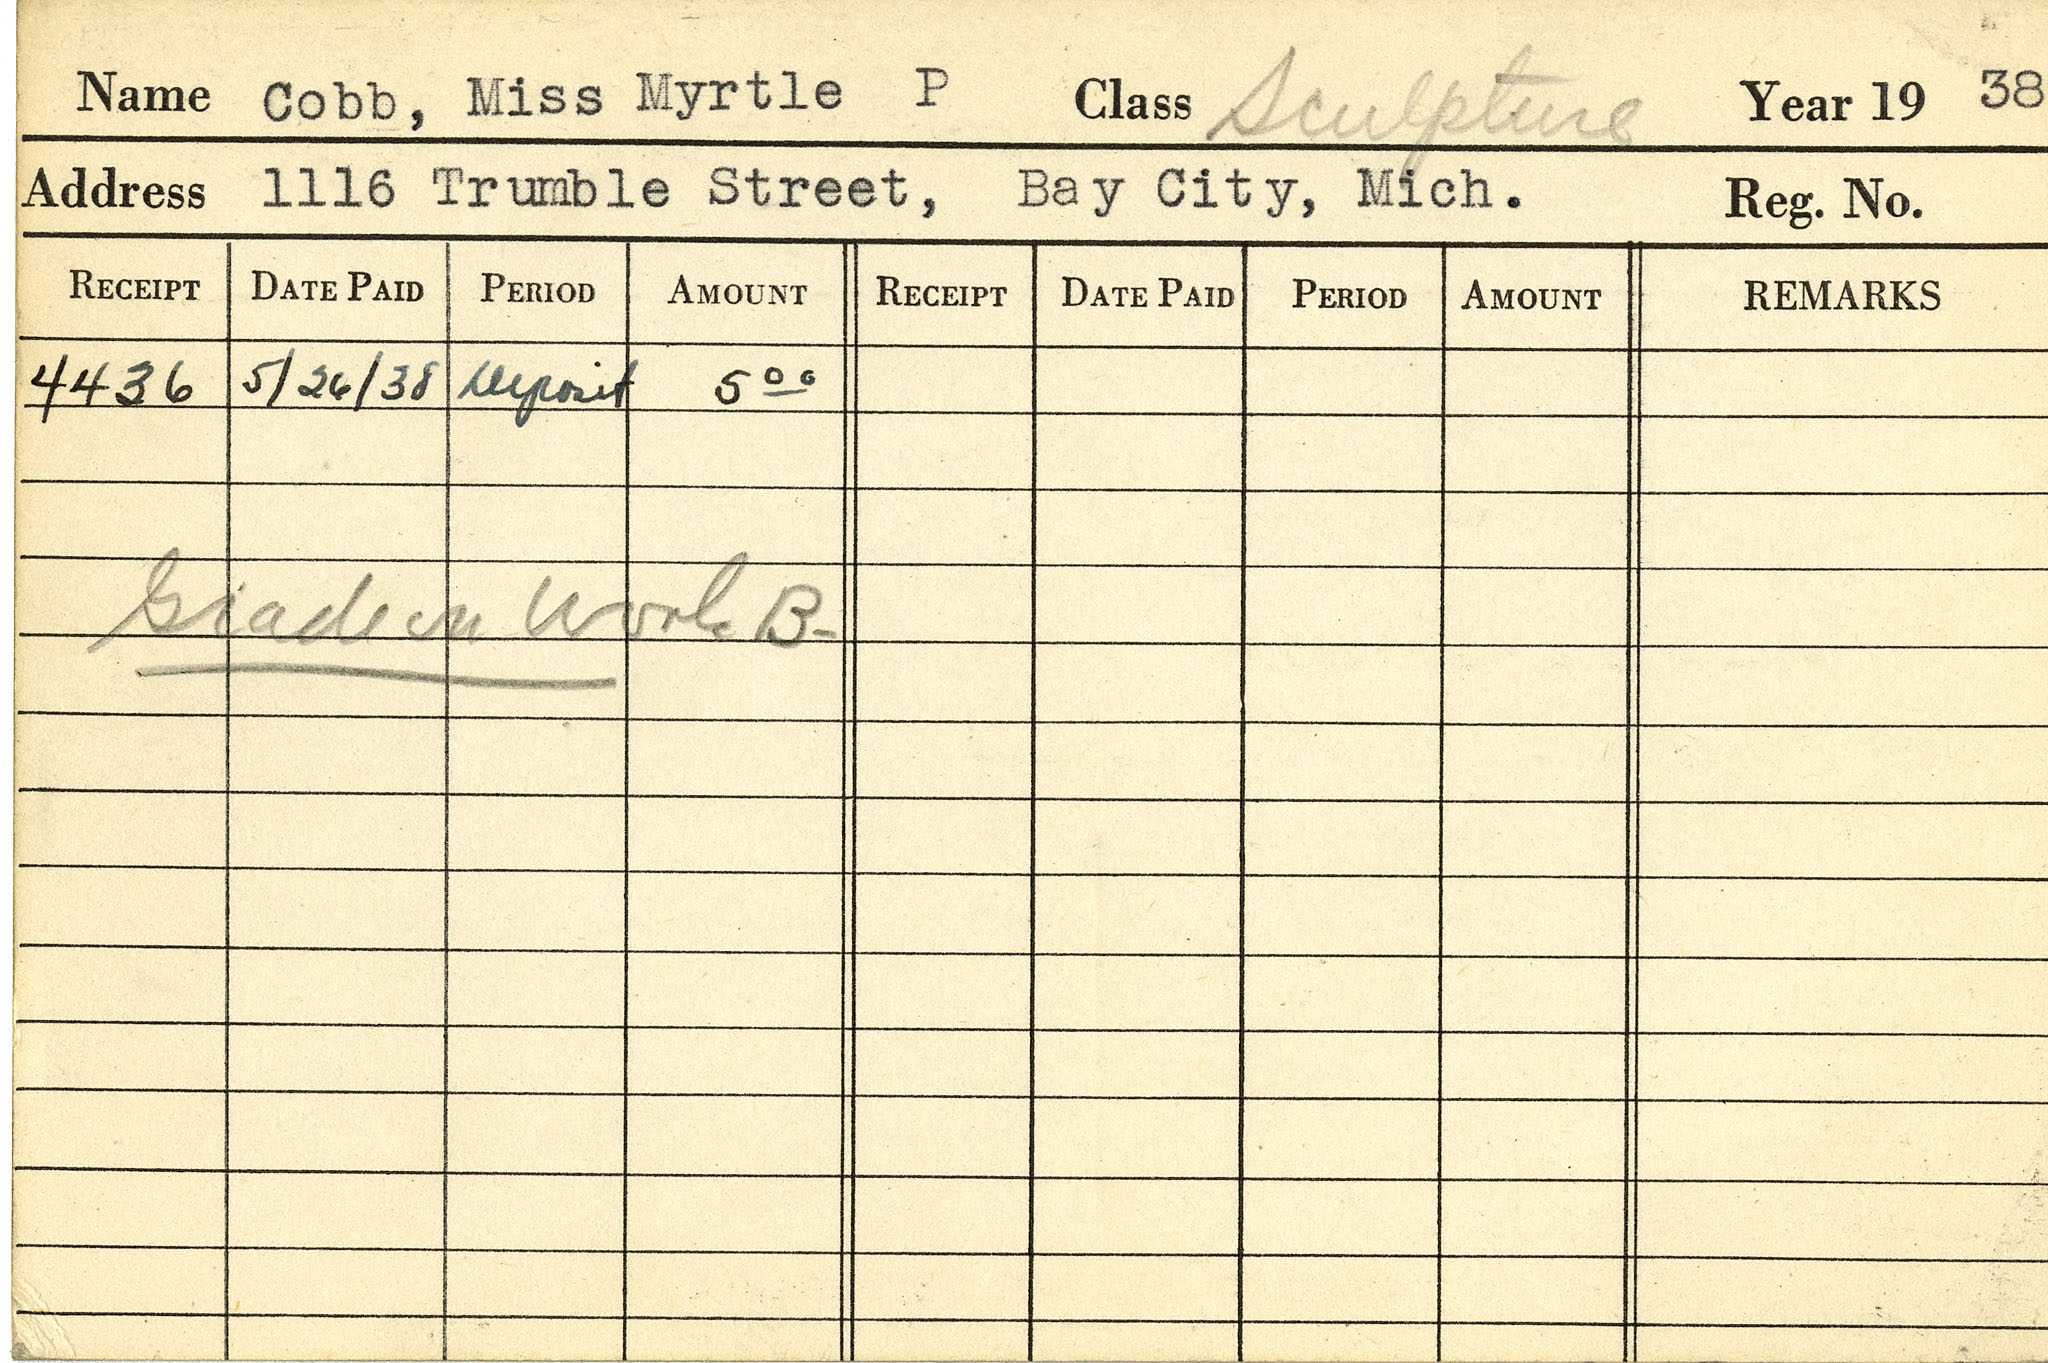 Name Cobb, Miss Myrtle P Class Sculpture Year 19 38
Address 1116 Trumble Street, Bay City, Mich. Reg. No.
RECEIPT DATE PAID PERIOD AMOUNT RECEIPT DATE PAID PERIOD AMOUNT REMARKS
4436 5/26/38 Deposit 5 00
Grade in Work B-